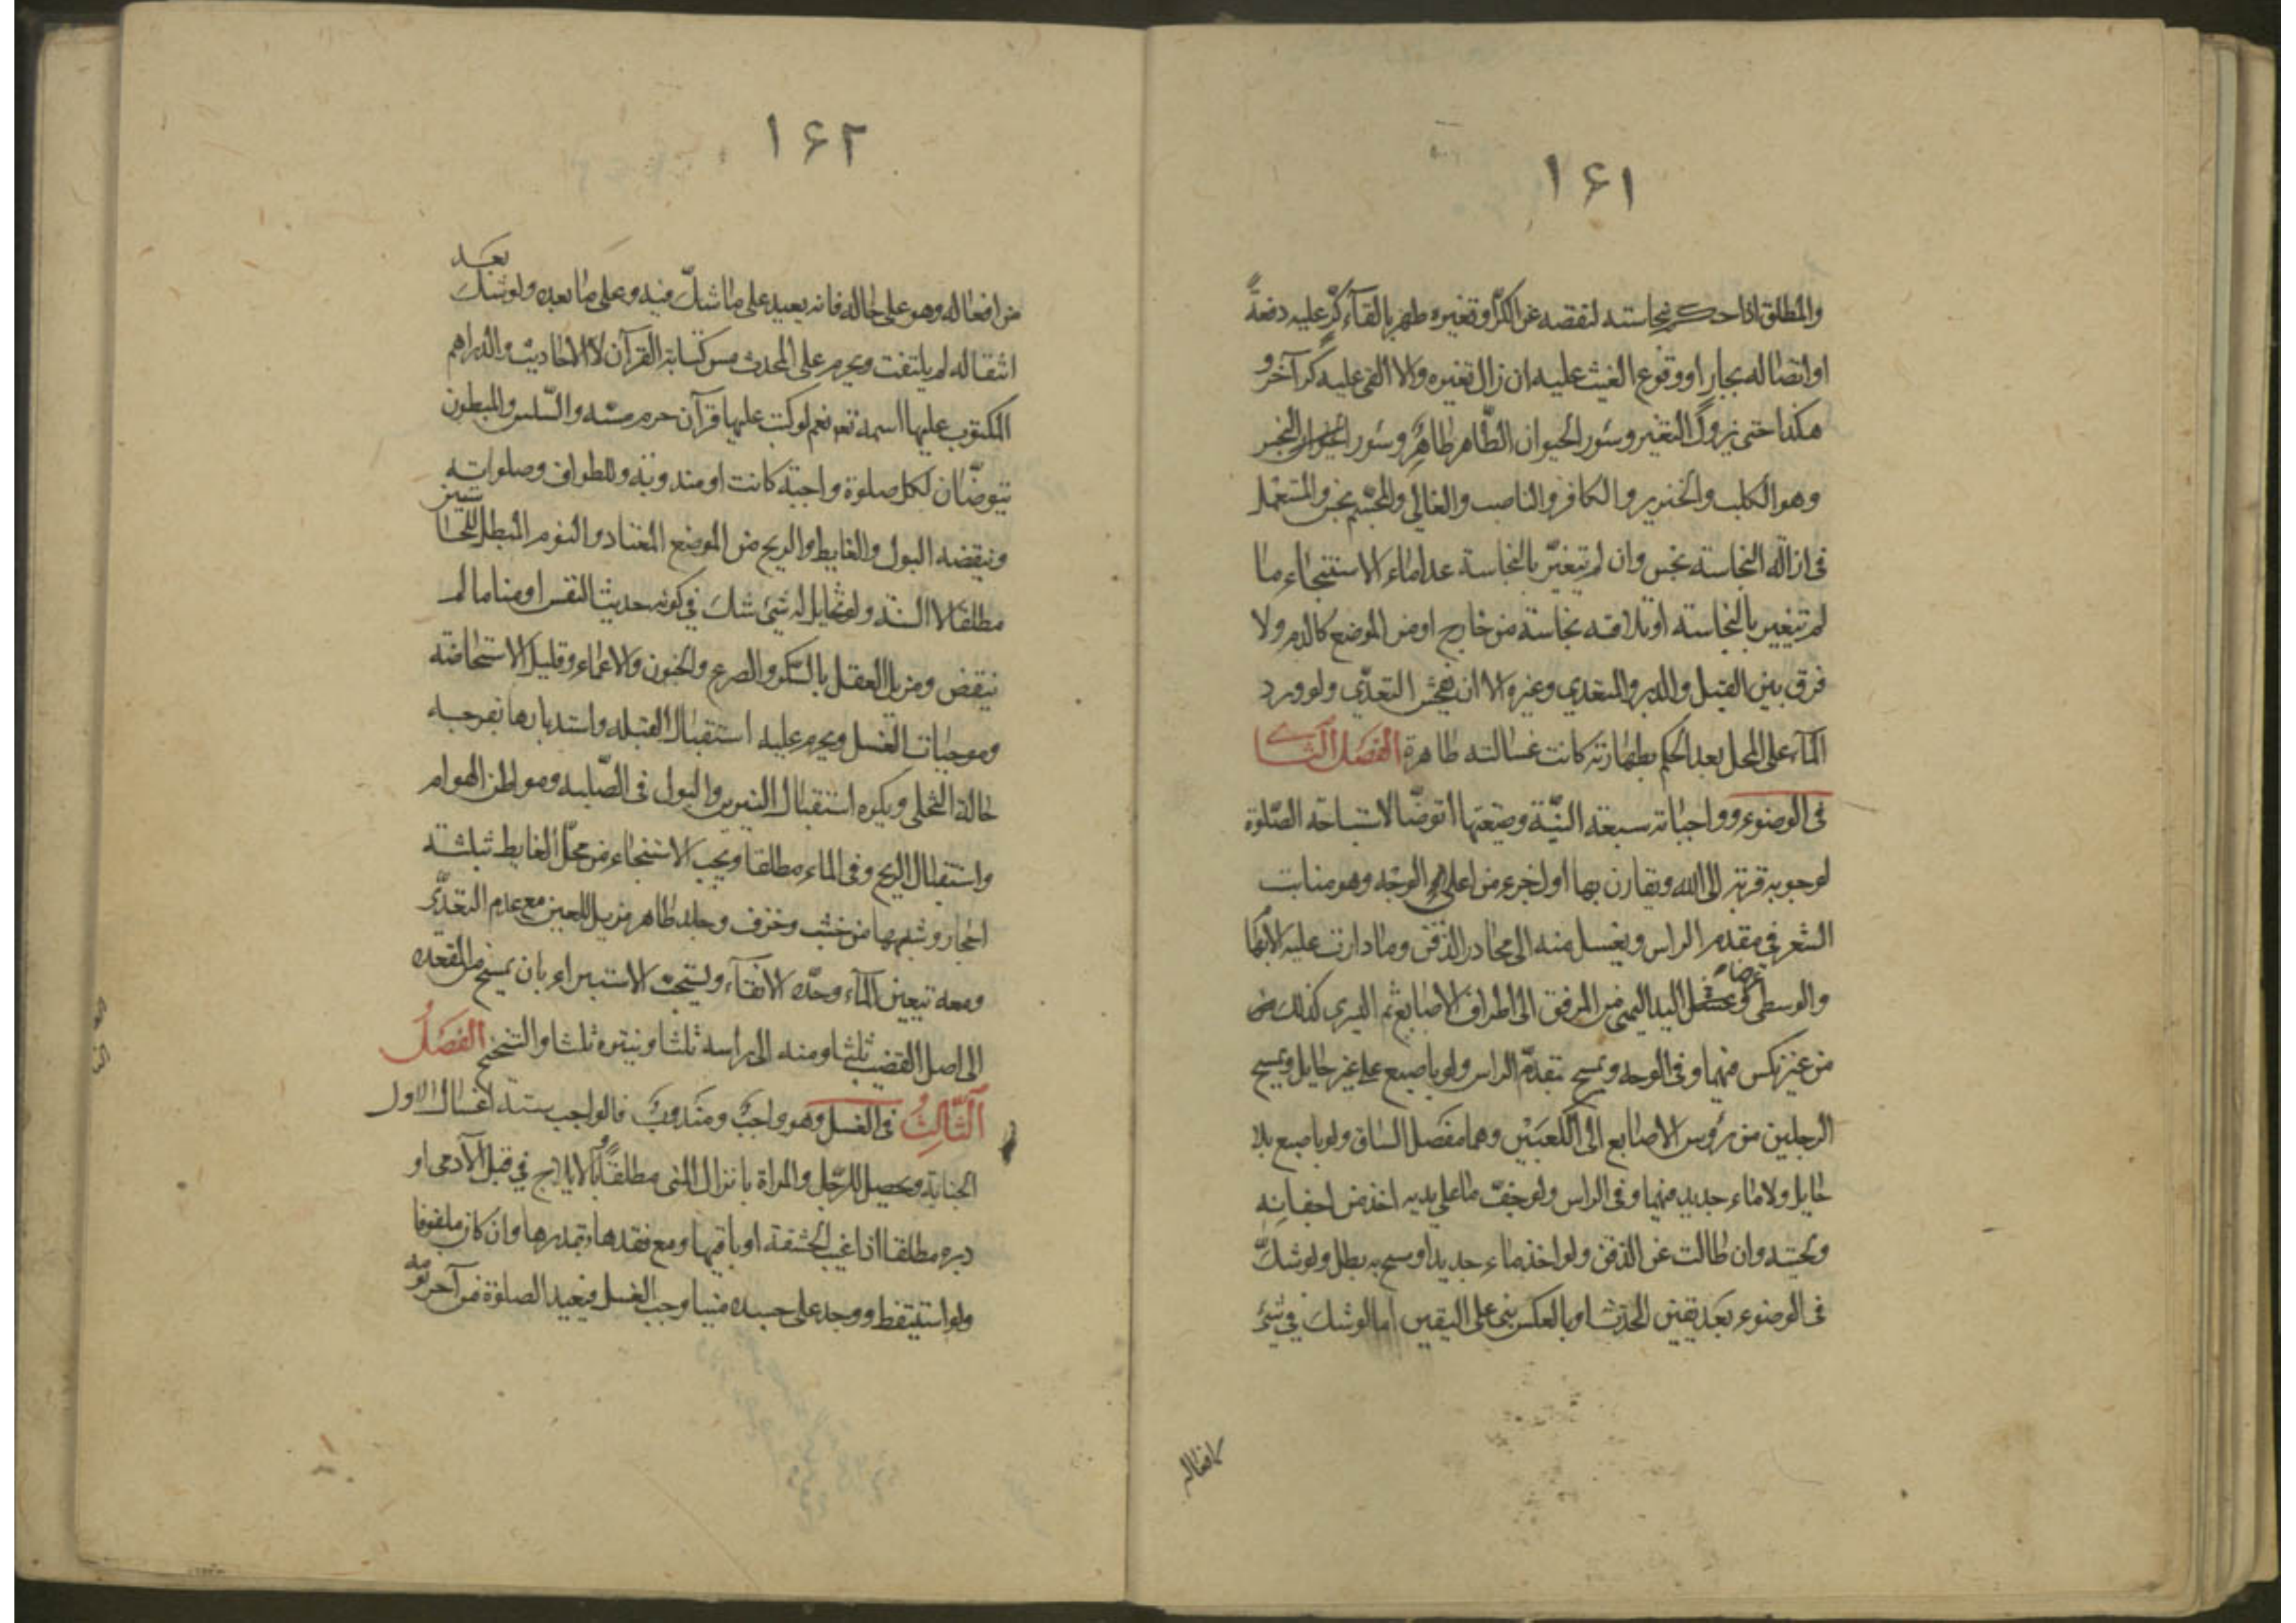 ١۶١
والمطلق اذا حكم بنجاسته لنقصه عن الكر او تغيره طهر بالقآء كرٍّ عليه دفعةً
او اتصاله بجارٍ او وقوع الغيث عليه ان زال تغيره والا القى عليه كر آخر و
هكذا حتى يزول التغير وسئور الحيوان الطّاهر طاهرٌ وسئور الحيوان النجس
وهو الكلب والخنزير والكافر والناصب والغالي والمجسّم نجس والمستعمل
فى ازالة النجاسة نجس وان لم يتغيّر بالنجاسة عدا ماء الاستنجاء ما
لم يتغير بالنجاسة او يلاقه نجاسة من خارج او من الموضع كالدم ولا
فرق بين القبل والدبر والمتعدي وغيره الا ان يفحش التعدّي ولو ورد
المآء على المحل بعد الحكم بطهارته كانت غسالته طاهرة الفصل الثانے
فى الوضوء وواجباته سبعة النيّة وصيغتها اتوضّا لاستباحة الصّلوة
لوجوبه قربة الى الله ويقارن بها اول جزء من اعلى الوجه وهو منابت
الشعر فى مقدم الراس ويغسل منه الى محادر الذقن وما دارت عليه الابهام
والوسطى عرضا وغسل اليد اليمنى من المرفق الى اطراف الاصابع ثم اليسرى كذلك
من غير نكس فيهما وفى الوجه ويمسح مقدّم الراس ولو باصبع على غير حايل ويمسح
الرجلين من رؤس الاصابع الى الكعبَيْن وهما مفصل الساق ولو باصبع بلا
حايل ولا ماء جديد فيهما وفى الراس ولو جفّ ما على يديه اخذ من اجفانه
ولحيته وان طالت عن الذقن ولو اخذ ماء جديدا ومسح به بطل ولو شكّ
فى الوضوء بعد يقين الحدث او بالعكس بنى على اليقين اما لو شك في شئ
١۶٢
من افعاله وهو على حاله فانه يعيد على ما شكّ فيه وعلى ما بعده ولو شك بعد
انتقاله لم يلتفت ويحرم على المحدث مس كتابة القرآن لا الاحاديث والدراهم
المكتوب عليها اسمه تع نعم لو كتب عليها قرآن حرم مسّه والسّلس والمبطون
يتوضّان لكل صلوة واجبة كانت او مندوبة وللطواف وصلواته
وينقضه البول والغايط والريح من الموضع المعتاد والنوم المبطل للحاستين
مطلقا لا السنة ولو تخايل له شئ شك في كونه حديث النفس او مناما لم
ينقض ومزيل العقل بالسّكر والصرع والجنون والاغماء وقليل الاستحاضة
وموجبات الغسل ويحرم عليه استقبال القبله واستدبارها بفرجه
حالة التخلى ويكره استقبال النيرين والبول فى الصّلبه ومواطن الهوام
واستقبال الريح وفى الماء مطلقا ويجب الاستنجاء من محل الغايط بثلثة
احجار وشبهها من خشب وخزف وجلد طاهر مزيل للعين مع عدم التعدّى
ومعه تعيين المآء وحدّه الانقآء ويستحب الاستبراء بان يمسح من المقعده
الى اصل القضيب ثلثا ومنه الى راسه ثلثا وينتره ثلثا والتنحنح الفصَلُ
الثّالِثُ فى الغسل وهو واجبٌ ومندوبٌ فالواجب ستة اغسال الاول
الجنابة ويحصل للرّجل والمراة بانزال المنى مطلقا وبالايلاج في قبل الآدمى او
دبره مطلقا اذا غيب الحشفة او باقيها ومع فقدها بقدرها وان كان ملفوفا
ولو استيقظ ووجد على جسده منيا وجب الغسل فيعيد الصلوة من آخر نومه